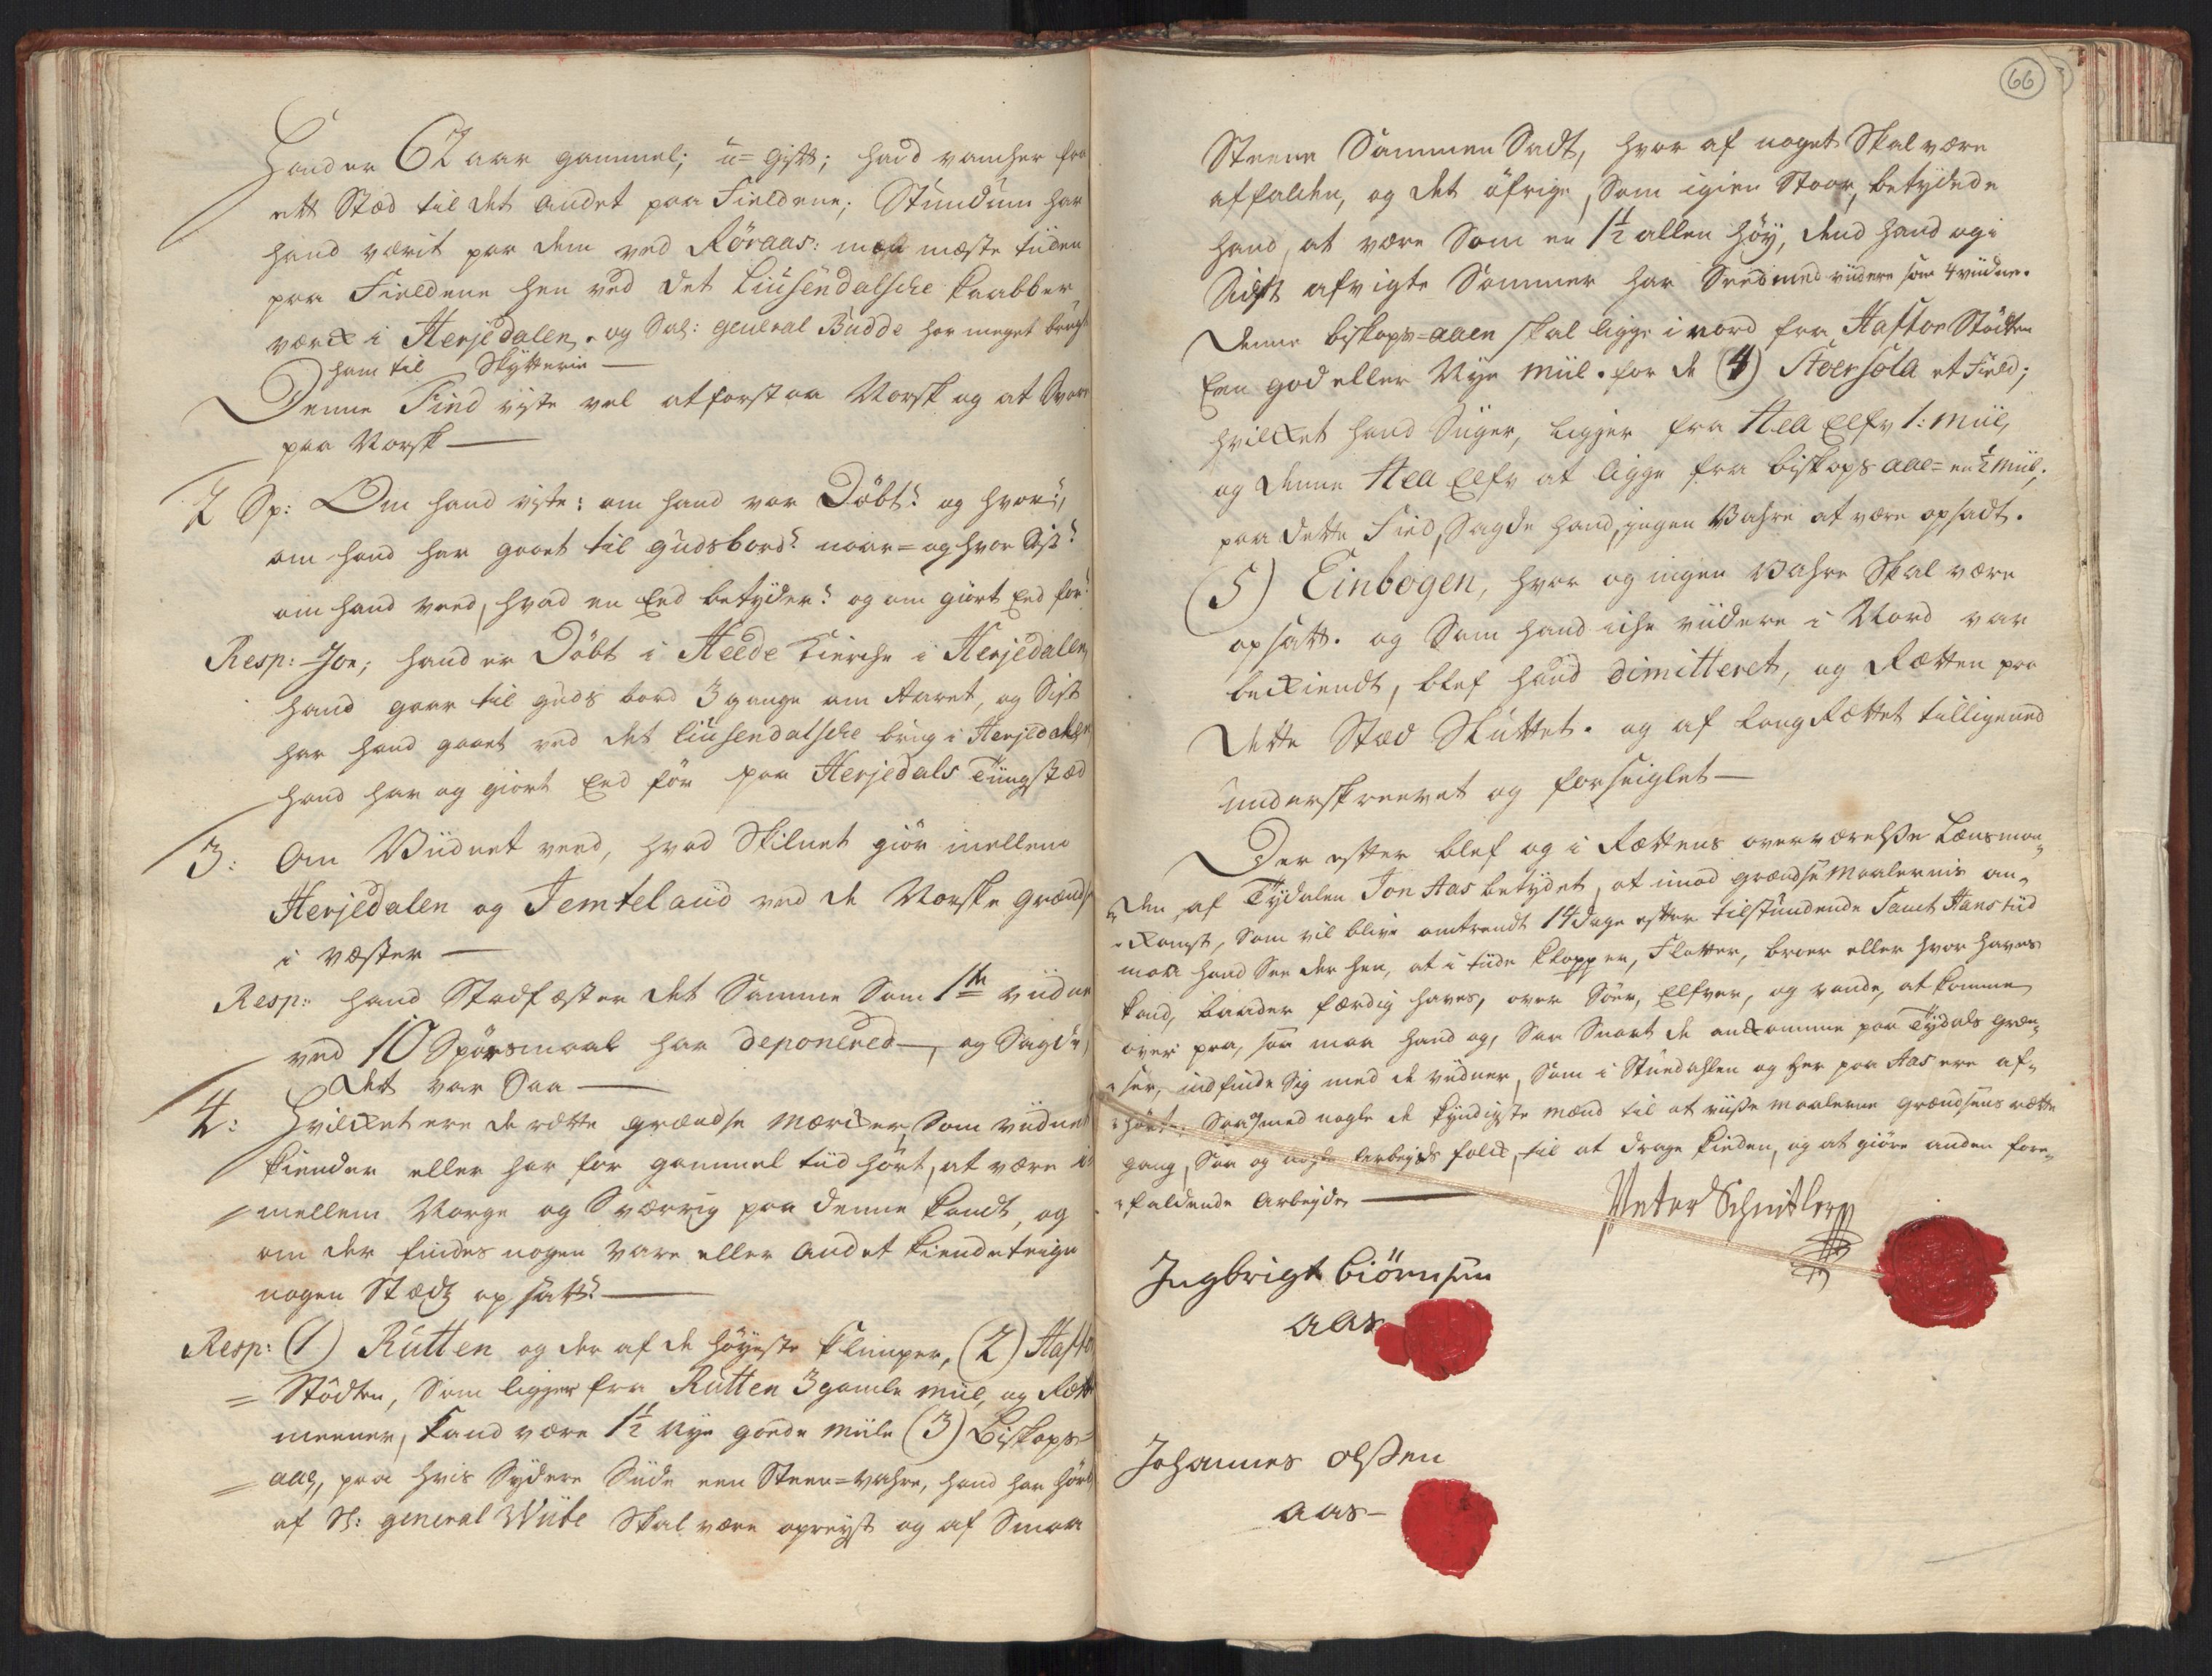 Hand er 62 aar gammel; u=gift; hand vancher fra
ett Stæd til det andet paa Fieldene; Stundum har
hand værit paa dem ved Røraas: men mæste tiiden
paa Fieldene hen ved det Liusendalsche Kaabber
værck i Herjedalen. og Sal: general Budde har meget brugt
ham til Skytterie —
Denne Find viste vel at forstaa Norsk og at Svare
paa Norsk —
2 Sp: Om hand viste: om hand var Döbt? og hvor?,
om hand har gaaet til gudsbord? naar= og hvor Sist?
om hand veed, hvad en Eed betyder? og om giort Eed før?
Resp: Joe; hand er Döbt i Heede Kierche i Herjedalen,
hand gaar til guds bord 3 gange om Aaret, og Sist
har hand gaaet ved det Liusendalsche brug i Herjedalen
hand har og giort Eed för paa Herjedals Tiingstæd
3: Om Viidnet veed, hvad Skilnet giör imellem
Herjedalen og Jemteland ved de Norske grændser
i væster —
Resp: hand Stadfæster det Samme Som 1te viidne
ved 10 Spörsmaal har deponered —, og Sagde,
det var Saa —
4: Hvilcket ere de rætte grændse mærcker, Som viidnet
kiender eller har for gammel tiid hört, at være i=
mellem Norge og Sværrig paa denne kandt, og
om der findes nogen Vare eller andet kiendeteign
nogen Stædz opsatt? —
Resp: (1) Rutten og der af de höyeste klimper, (2) Haftor
= Stödten, Som ligger fra Rutten 3 gamle miil, og Rætten
meener, kand være 1½ nye goede miile (3) Biskops=
= aae, paa hvis Sydere Siide een Steen=Vahre, hand har hört
af S: general Wiibe Skal være opreyst og af Smaa
66
Steene Sammen Sadt, hvor af noget Skal være
affalden, og det öfrige, Som igien Staar, betydede
hand, at være Som en 1½ allen höy, dend hand og i
Sidst afvigte Sommer har Seed med viidere som 4 viidne.
Denne biskops=aaen skal ligge i nord fra Haftor Stödten
Een god eller Nye miil. for de (4) Stoersola et Field;
hvilcket hand Siiger, ligger fra Hea Elfv 1: miil,
og denne Hea Elfv at ligge fra biskops aae= en ½ miil;
paa dette Field, Sagde hand, ingen Vahre at være opsadt.
(5) Einbogen, hvor og ingen Vahre Skal være
opsatt. og Som hand iche viidere i Nord var
beckiendt, blef hand dimitteret, og Rætten paa
dette Stæd Sluttet. og af LaugRættet tilligemed
underskreevet og forseiglet —
Der efter blef og i Rættens overværelsse Lænsman=
den af Tydalen Jon Aas betydet, at imod grændse Maalernis an=
=komst, Som vil blive omtrendt 14 dage efter tilstundende Sanct Hans tiid
maa hand See der hen, at i tiide Klopper, Flotter, broer eller hvor haves
kand, baader færdig haves, over Söer, Elfver, og vande, at komme
over paa, saa maa hand og, Saa Snart de anckomme paa Tydals græn=
=ser, indfinde Sig med de viidner, Som i Stuedahlen og her paa Aas ere af=
=hört. Saa og med nogle de kyndigste mænd til at viisse maalerne grændsens rætte
gang, Saa og nogle Arbeyds folck, til at drage kieden, og at giöre anden fore=
=faldende Arbeyde —
Peter Schnitler
Ingbrigt Biörnsen
aas
Johannes olssen
aas —